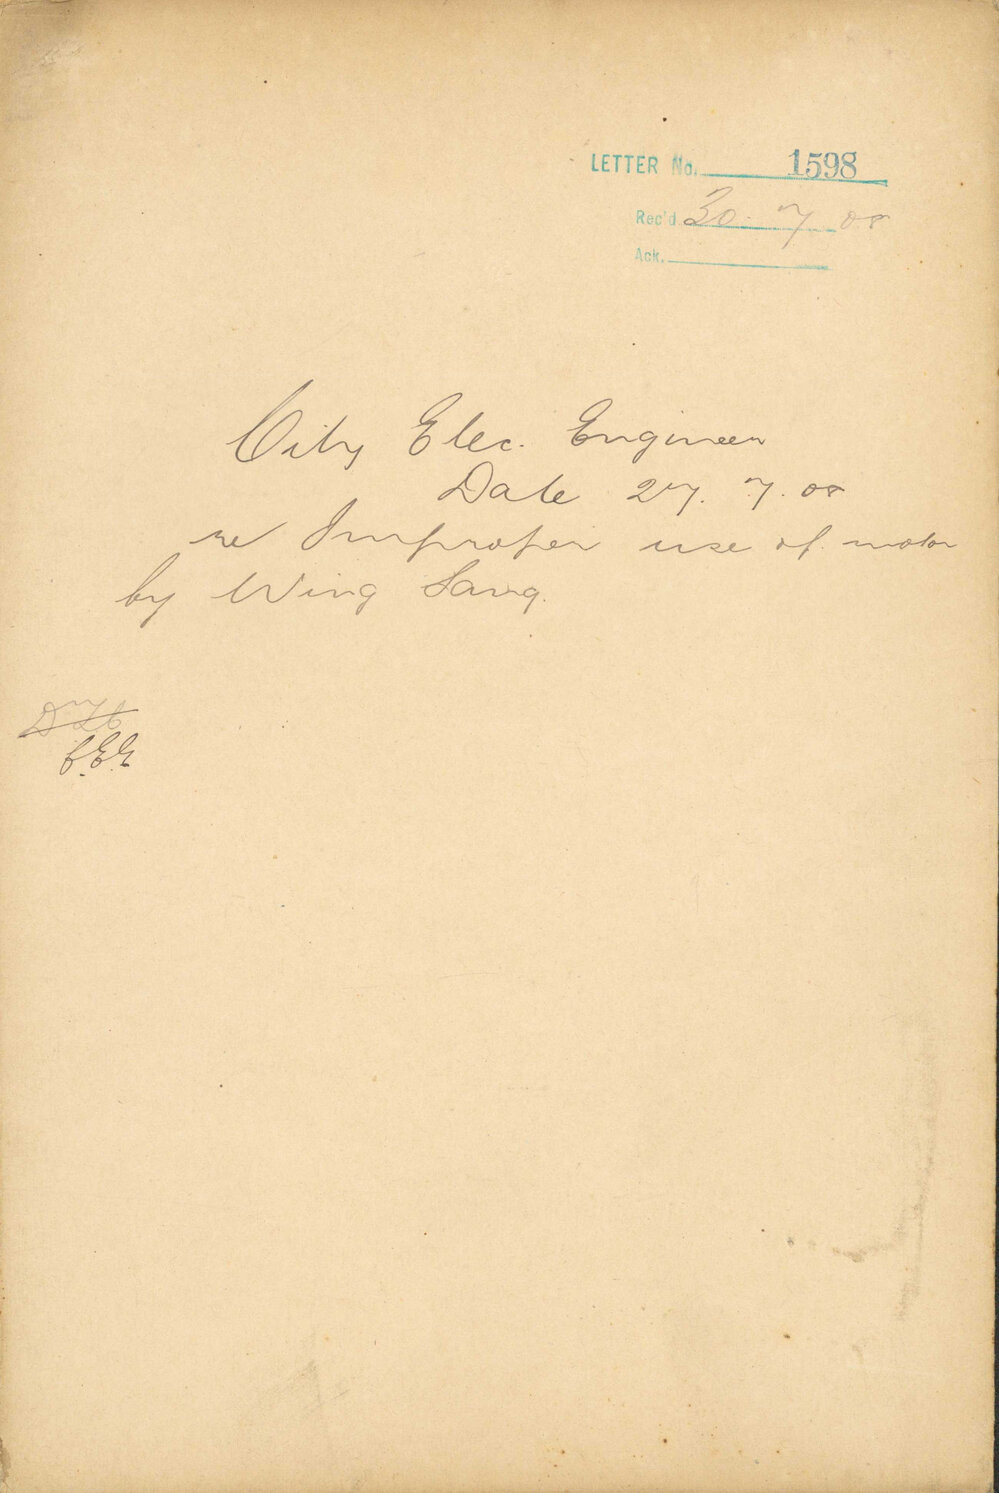 LETTER No. 1598
Rec'd. 30. 7 08
Ack.
City Elec. Engineer
Date 27. 7. 08
re Improper use of motor
by Wing Sang.
C.E.E.